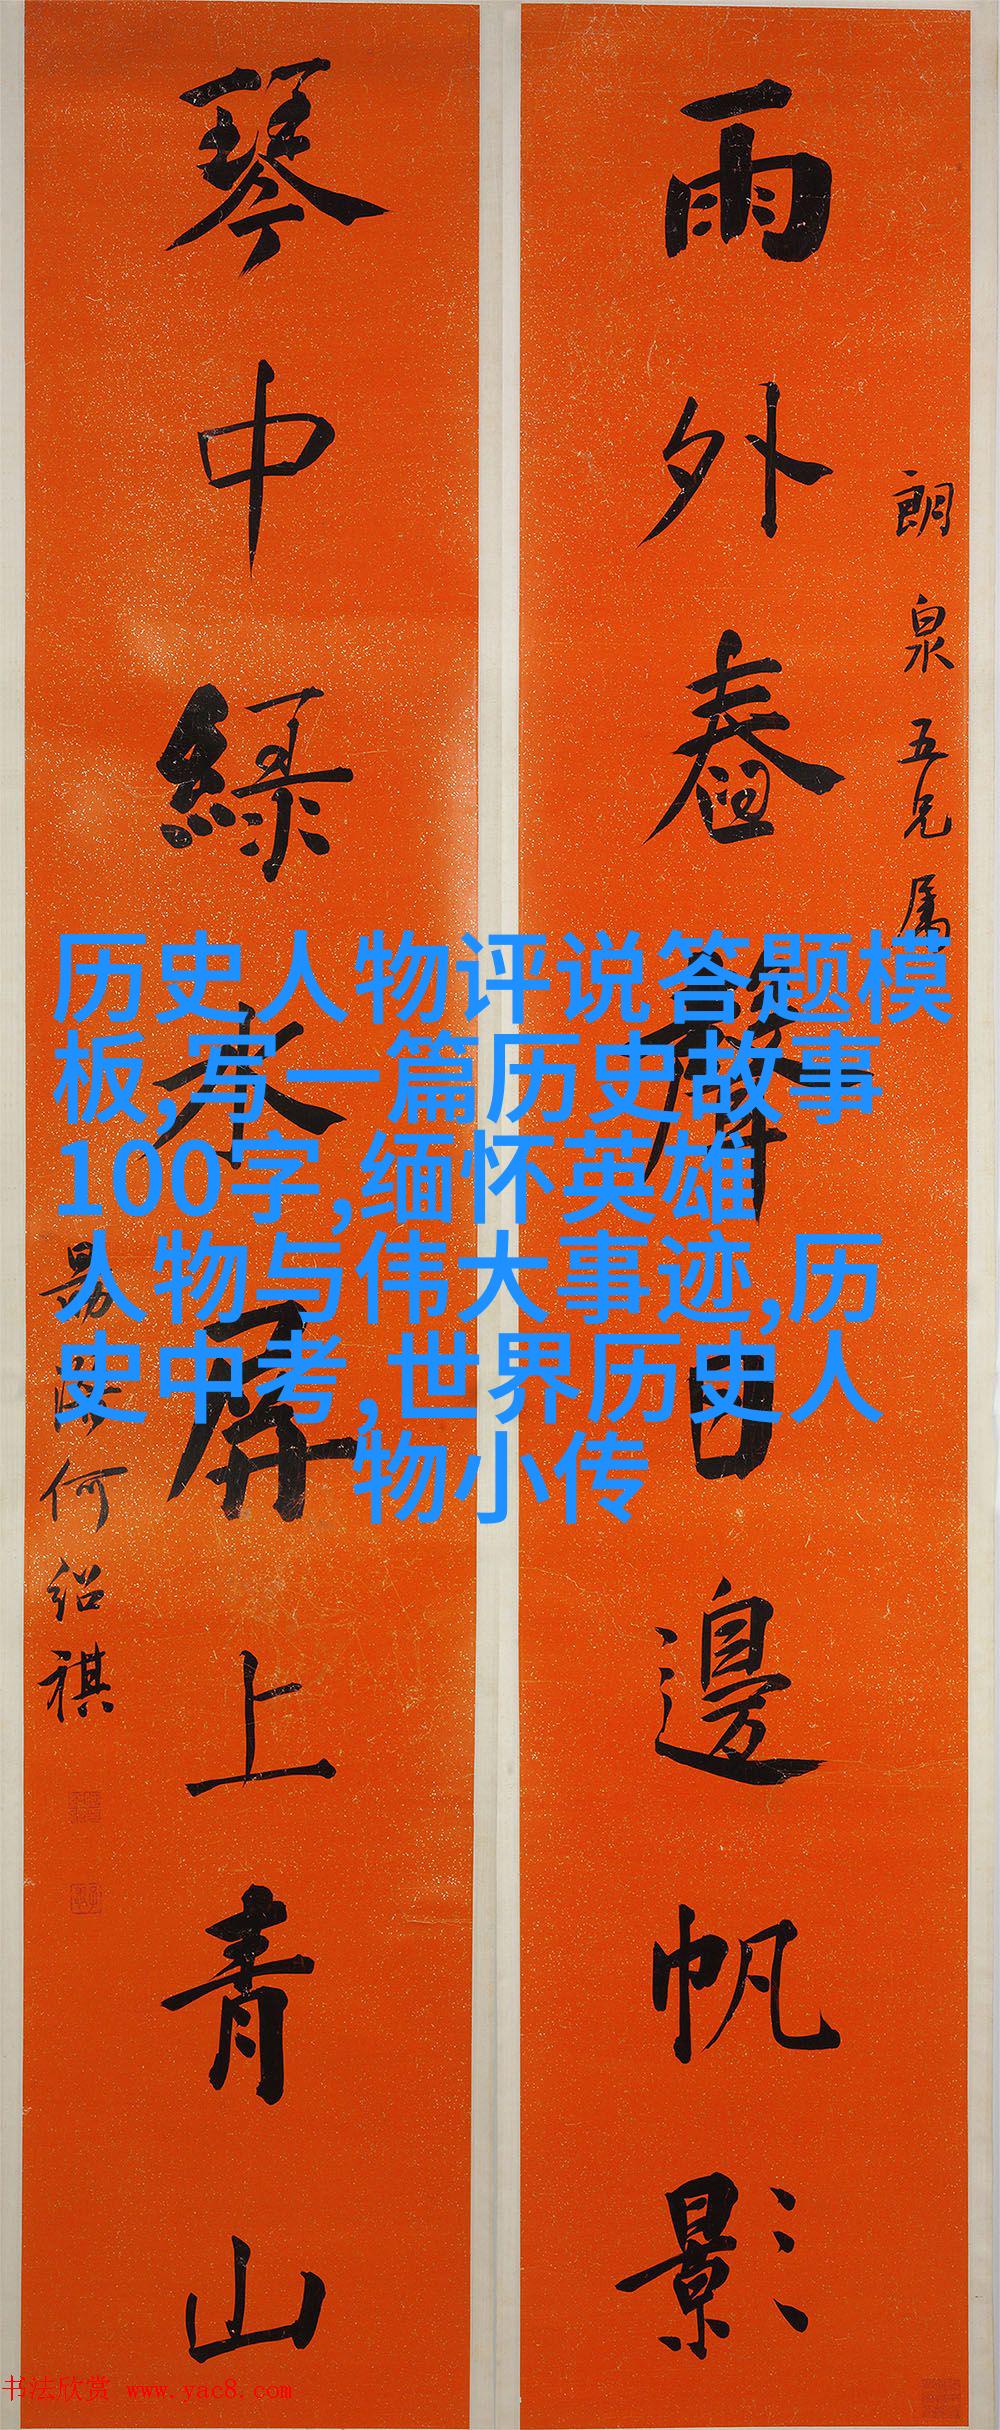 雨外舂聲日邊帆影
朗泉五兄属
琴中綠水屏上青山
勗何紹祺
历史人物评说答题模
板,写一篇历史故事
100字,缅怀英雄
人物与伟大事迹,历
史中考,世界历史人
物小传
书法欣赏 www.yac8.com